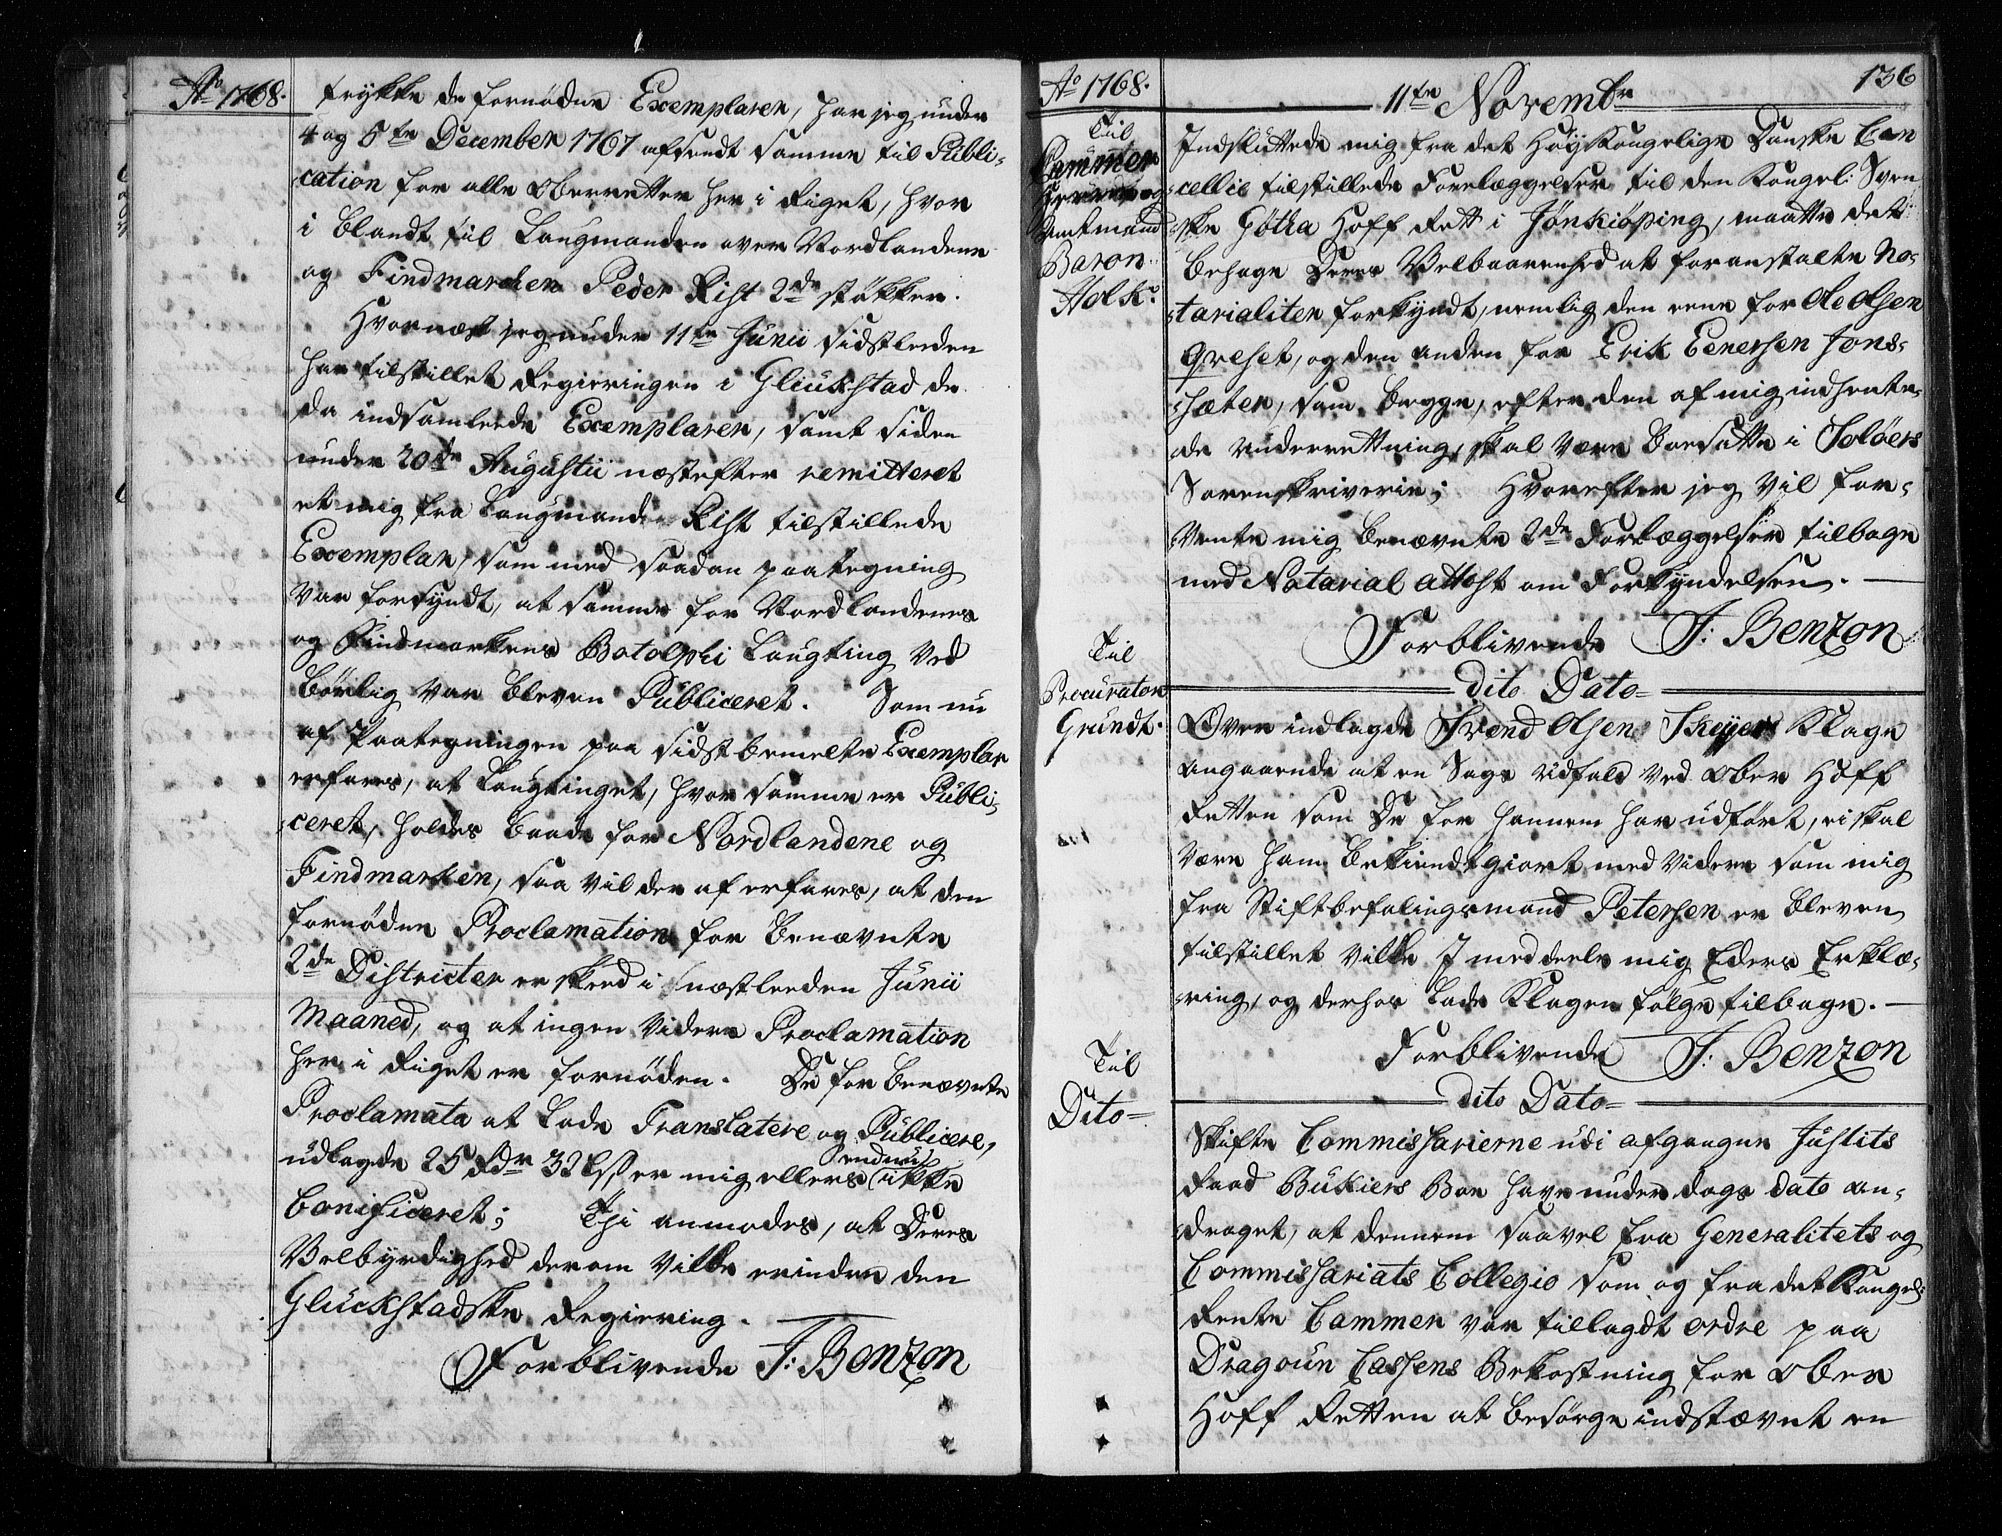 Ao 1768.
trykke de fornødne Exemplarer, har jeg under
4 og 5te December 1767 afsendt samme til Publi-
cation for alle Oberretter her i Riget, hvor
i blandt til Laugmanden over Nordlandene
og Findmarcken Peder Rist 2de støkker.
Hvornæst jeg under 11te Junii sidstleeden
har tilstillet Regieringen i Glückstad de
da indsamlede Exemplarer, samt siden
under 20de Augustii næstefter remitteret
et mig fra Laugmand Rist tilstillede
Exemplar, som med saadan paategning
var forsynet, at samme for Nordlandenes
og Findmarkens Botolphi Laugting ved
børlig var bleven Publiceret. Som nu
af Paategningen paa sidstbemelte Exemplar
erfares, at Laugtinget, hvor samme er Publi-
ceret, holdes baade for Nordlandene og
Findmarken, saa vil der af erfares, at den
fornøden Proclamation for benævnte
2de Districter er skeed i næstleeden Junii
Maaned, og at ingen videre Proclamation
her i Riget er fornøden. De for benævnte
Proclamata at lade Translatere og Publicere,
udlagde 25 Rdr 32 ss er mig ellers endnu ikke
bonificeret; Thi anmodes, at Deres
Velbyrdighed derom ville erindre den
Glückstadske Regiering.
Forblivende J: Benzon
Ao 1768.
11te Novembr
136
Til
Cammer
Herre og
Amtmand
Baron
Holk.
Indsluttede mig fra det Høy Kongelige Danske Can
cellie tilstillede Forelæggelser til den Kongel: Sven
ske Gøtha Hoff Rett i Jönkiöping, maatte det
behage Deres Velbaarenhed at foranstalte No-
tarialiter forkyndt, nemlig den eene for Ole Olsen
Qveset, og den anden for Erik Eenersen Jons-
sæten, som begge, efter den af mig indhente-
de Underrettning, skal være boesatte i Soløers
Sorenskriverie; Hvorefter jeg vil for-
vente mig benævnte 2de Forlæggelser tilbage
med Notarial Attest om Forkyndelsen.
Forblivende J: Benzon
dito Dato
Til
Procurator
Grundt.
Over indlagde Svend Olsen Skeyers Klage
angaaende at en Sags Udfald ved Ober Hoff
Retten som De for hannem har udført, ei skal
være ham bekiendtgiort med videre som mig
fra Stiftbefalingsmand Petersen er bleven
tilstillet ville I meddeele mig Eders Erklæ-
ring, og derhos lade Klagen følge tilbage.
Forblivende J: Benzon
dito Dato
Til
Dito
Skifte Commissarierne udi afgangne Justits
Raad Bükiers Boe have under dags dato an-
draget, at dennem saavel fra Generalitets og
Commissariats Collegio som og fra det Kongel:
Rente Cammer var tillagdt ordre paa
Dragoun Cassens Bekostning for Ober
Hoff Retten at besørge indstævnet en